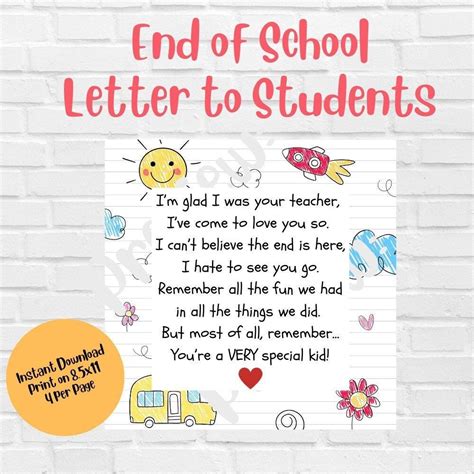 End of School
Letter to Students
I'm glad I was your teacher,
I've come to love you so.
I can't believe the end is here,
I hate to see you go.
Remember all the fun we had
in all the things we did.
But most of all, remember...
You're a VERY special kid!
Instant Download
Print on 8.5x11
4 Per Page